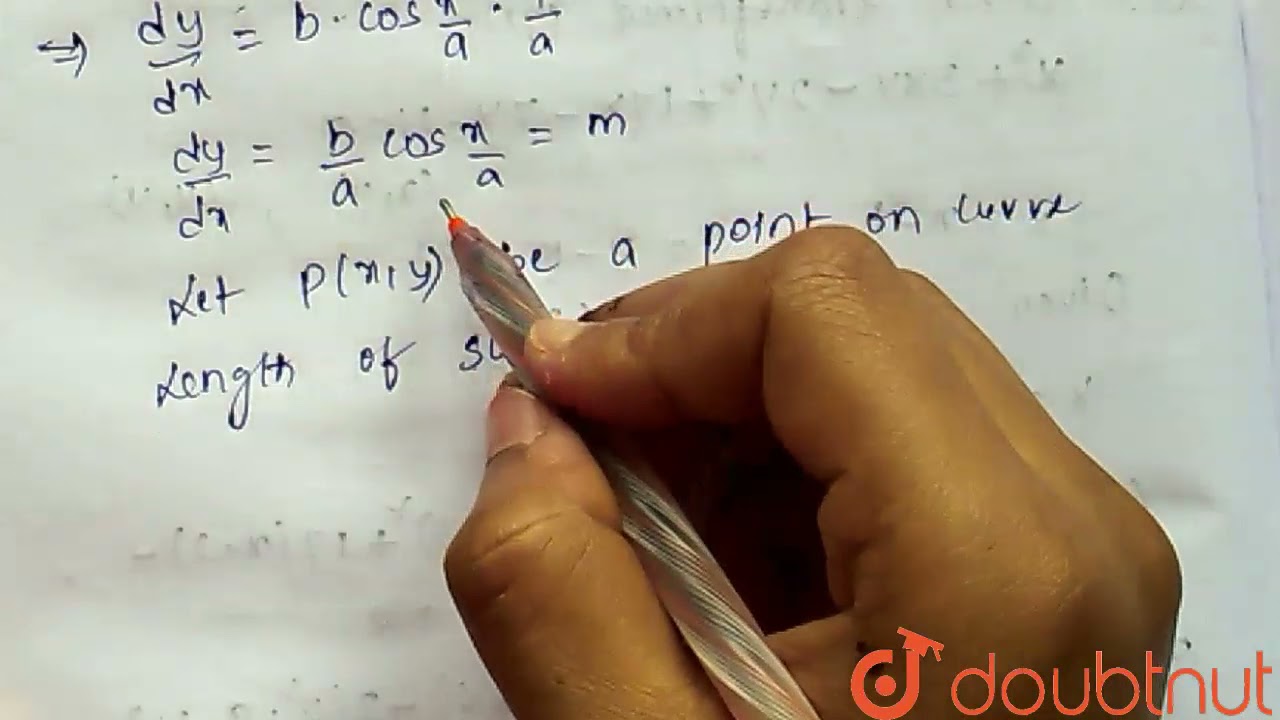 ⇒ dy/dx = b · cos x/a · 1/a
dy/dx = b/a cos x/a = m
Let P(x, y) be a point on curve
Length of
doubtnut